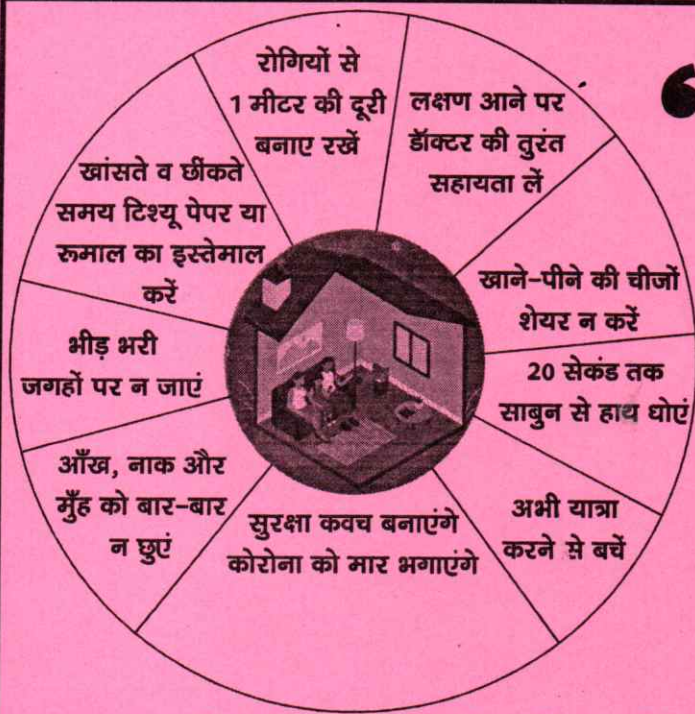 रोगियों से
1 मीटर की दूरी
बनाए रखें
लक्षण आने पर
डॅाक्टर की तुरंत
सहायता लें
खाने-पीने की चीजों
शेयर न करें
20 सेकंड तक
साबुन से हाथ धोएं
अभी यात्रा
करने से बचें
सुरक्षा कवच बनाएंगे
कोरोना को मार भगाएंगे
आँख, नाक और
मुँह को बार-बार
न छुएं
भीड़ भरी
जगहों पर न जाएं
खांसते व छींकते
समय टिश्यू पेपर या
रूमाल का इस्तेमाल
करें